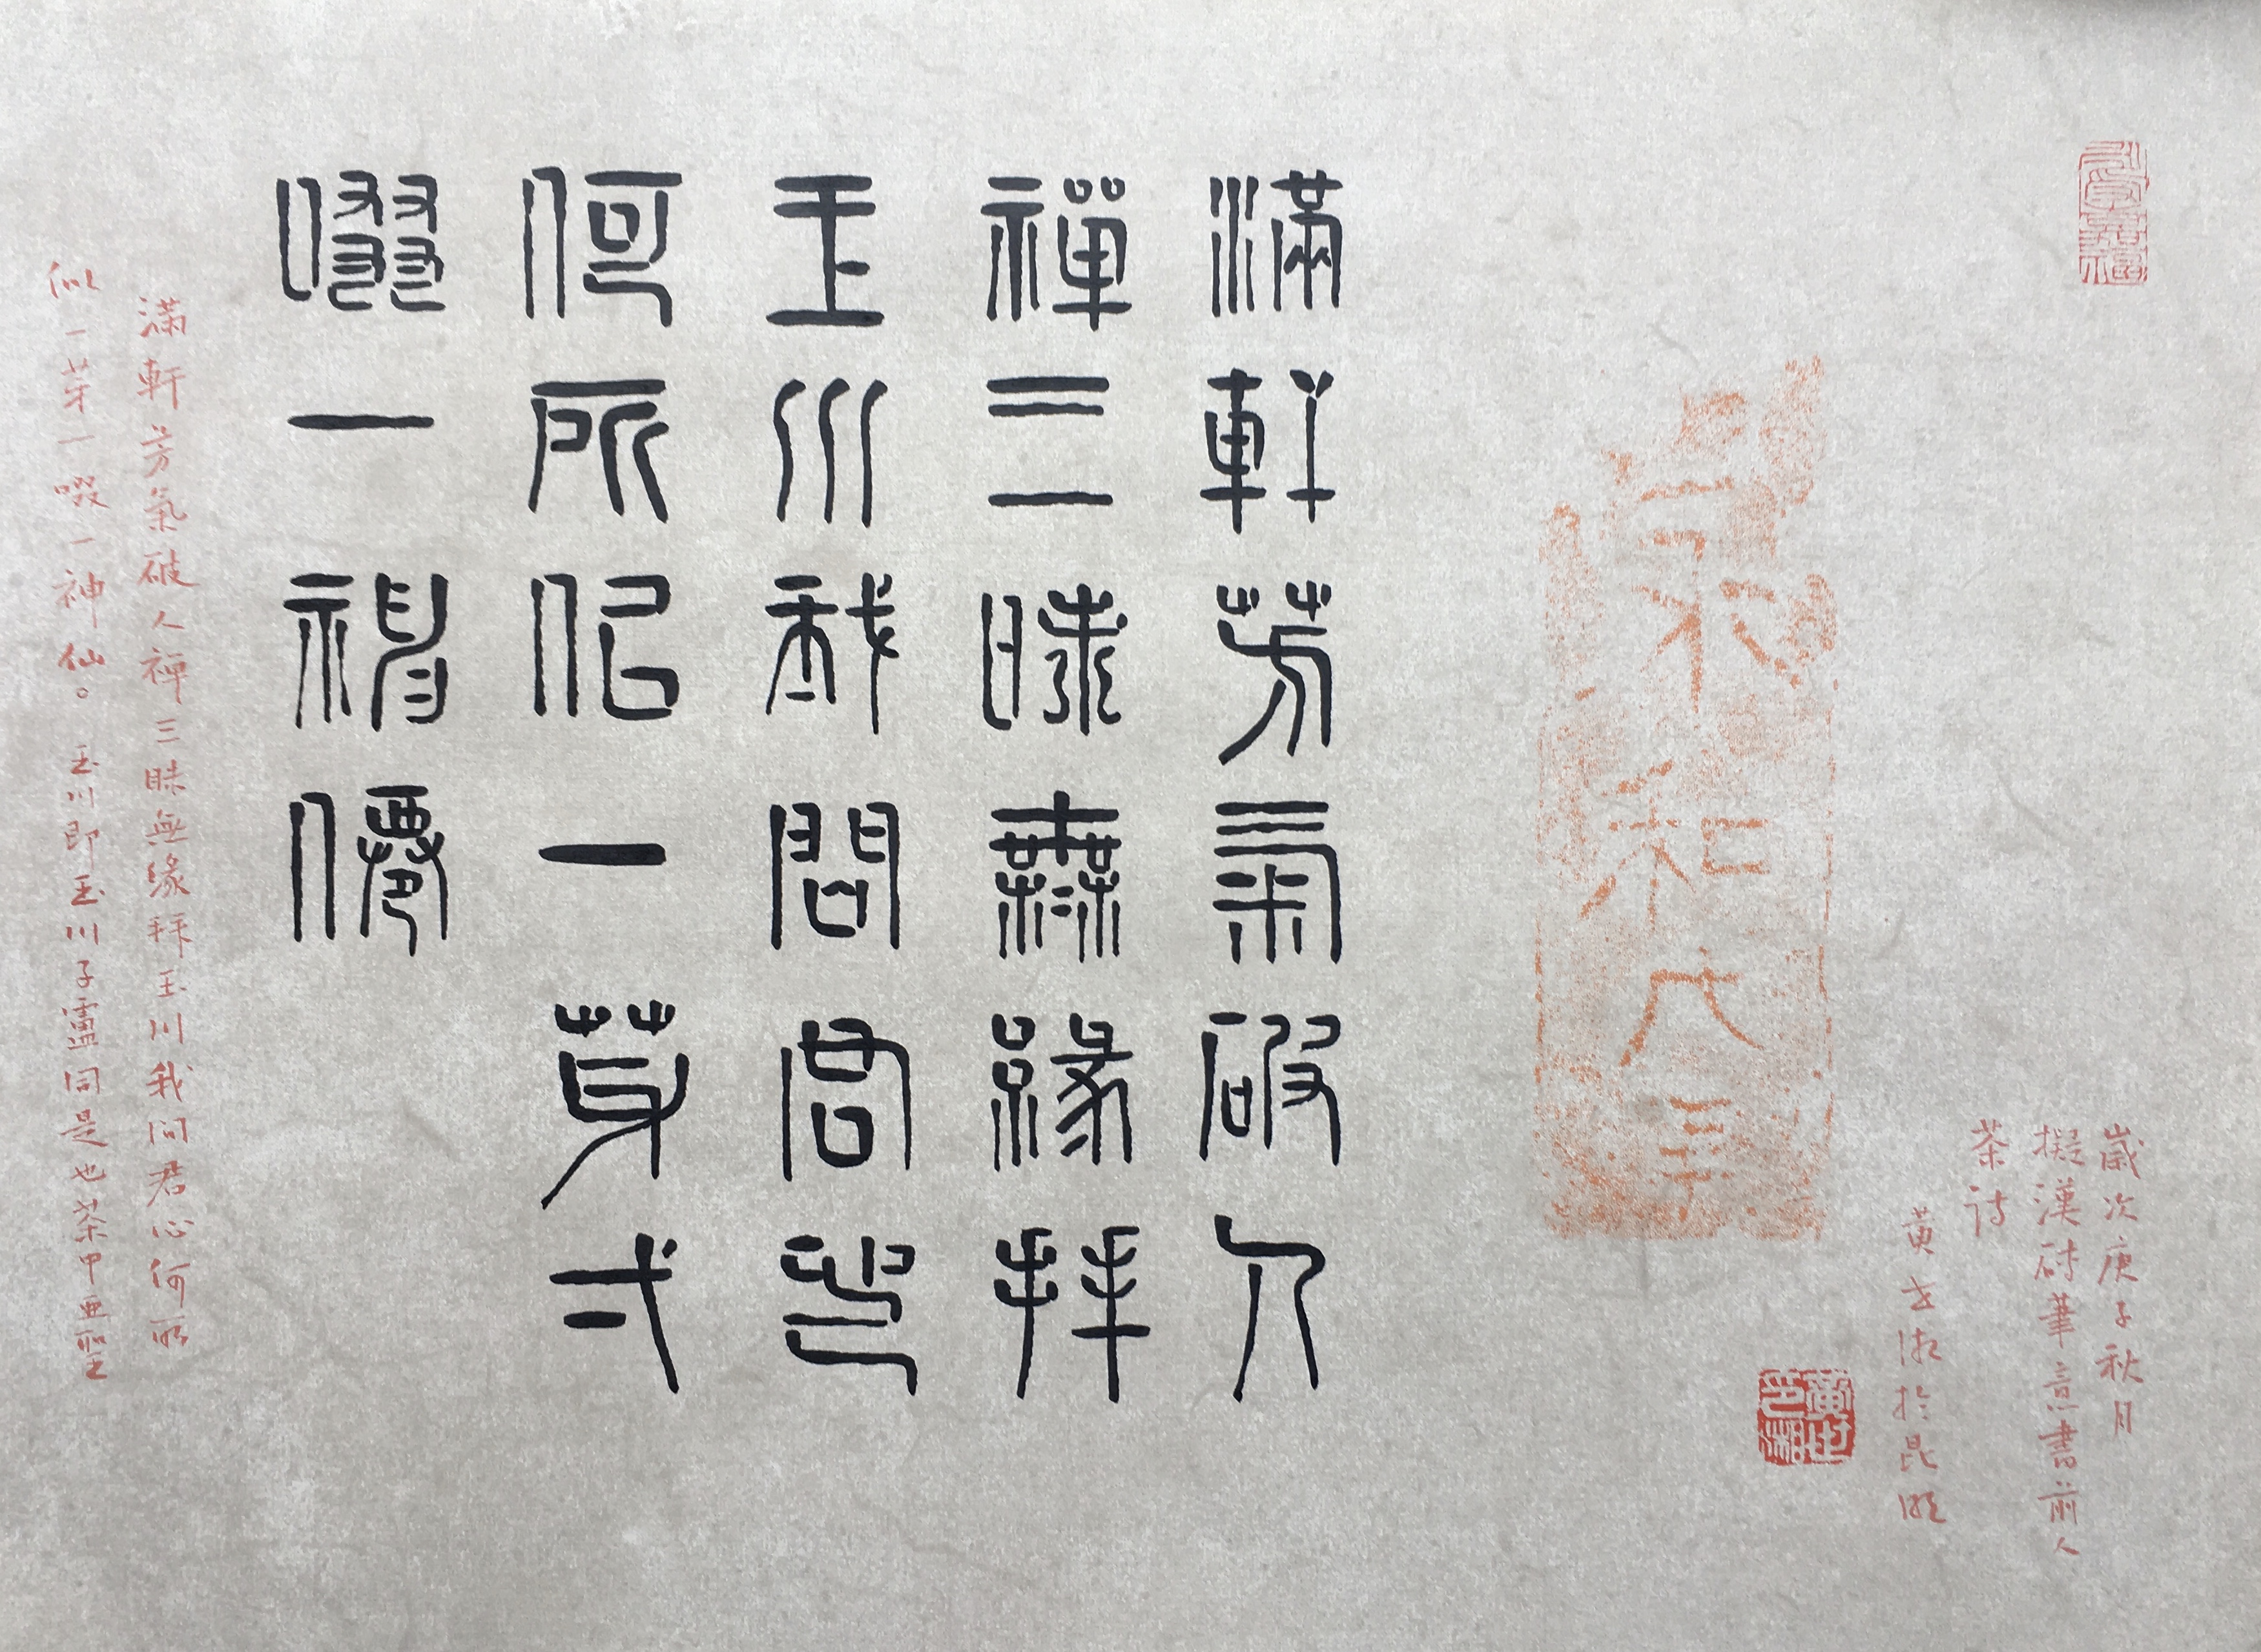 歲次庚子秋月
擬漢碑筆意書前人
茶詩
黃世湘於昆明
黃世湘印
滿軒芳氣破人
禪三昧無緣拜
玉川我問君心
何所佀一芽弌
啜一神僊
滿軒芳氣破人禪三昧無緣拜玉川我問君心何所
似一芽一啜一神仙。玉川即玉川子盧同是也茶中亞聖